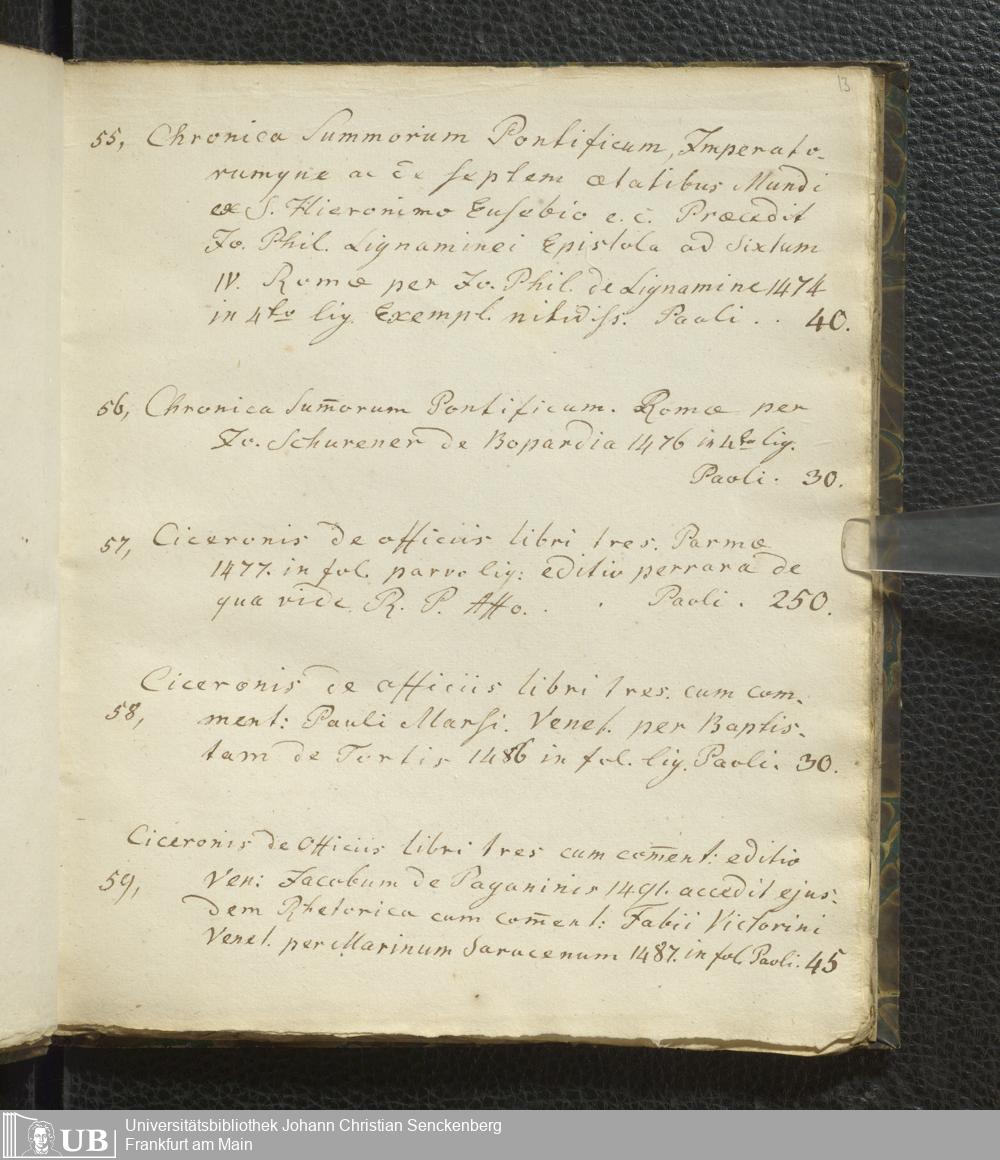 13
55, Chronica Summorum Pontificum, Imperato-
rumque ac de septem ætatibus Mundi
ex S. Hieronimo Eusebio e. c. Præcedit
Jo. Phil. Lignaminei Epistola ad Sixtum
IV. Romæ per Jo. Phil. de Lignamine 1474
in 4to lig. Exempl. nitidiss. Paoli . . 40.
56, Chronica Sum̄orum Pontificum. Romæ per
Jo. Schurener de Bopardia 1476 in 4to lig.
Paoli. 30.
57, Ciceronis de officiis libri tres. Parmæ
1477. in fol. parvo lig: editio perrara de
qua vide R. P. Affo. . . Paoli . 250.
Ciceronis de officiis libri tres. cum com-
58, ment: Pauli Marsi. Venet. per Baptis-
tam de Tortis 1486 in fol. lig. Paoli. 30.
Ciceronis de Officiis libri tres cum com̄ent: editio
59, Ven: Jacobum de Paganinis 1491. accedit ejus-
dem Rhetorica cum com̄ent: Fabii Victorini
Venet. per Marinum Saracenum 1487. in fol. Paoli. 45
UB
Universitätsbibliothek Johann Christian Senckenberg
Frankfurt am Main